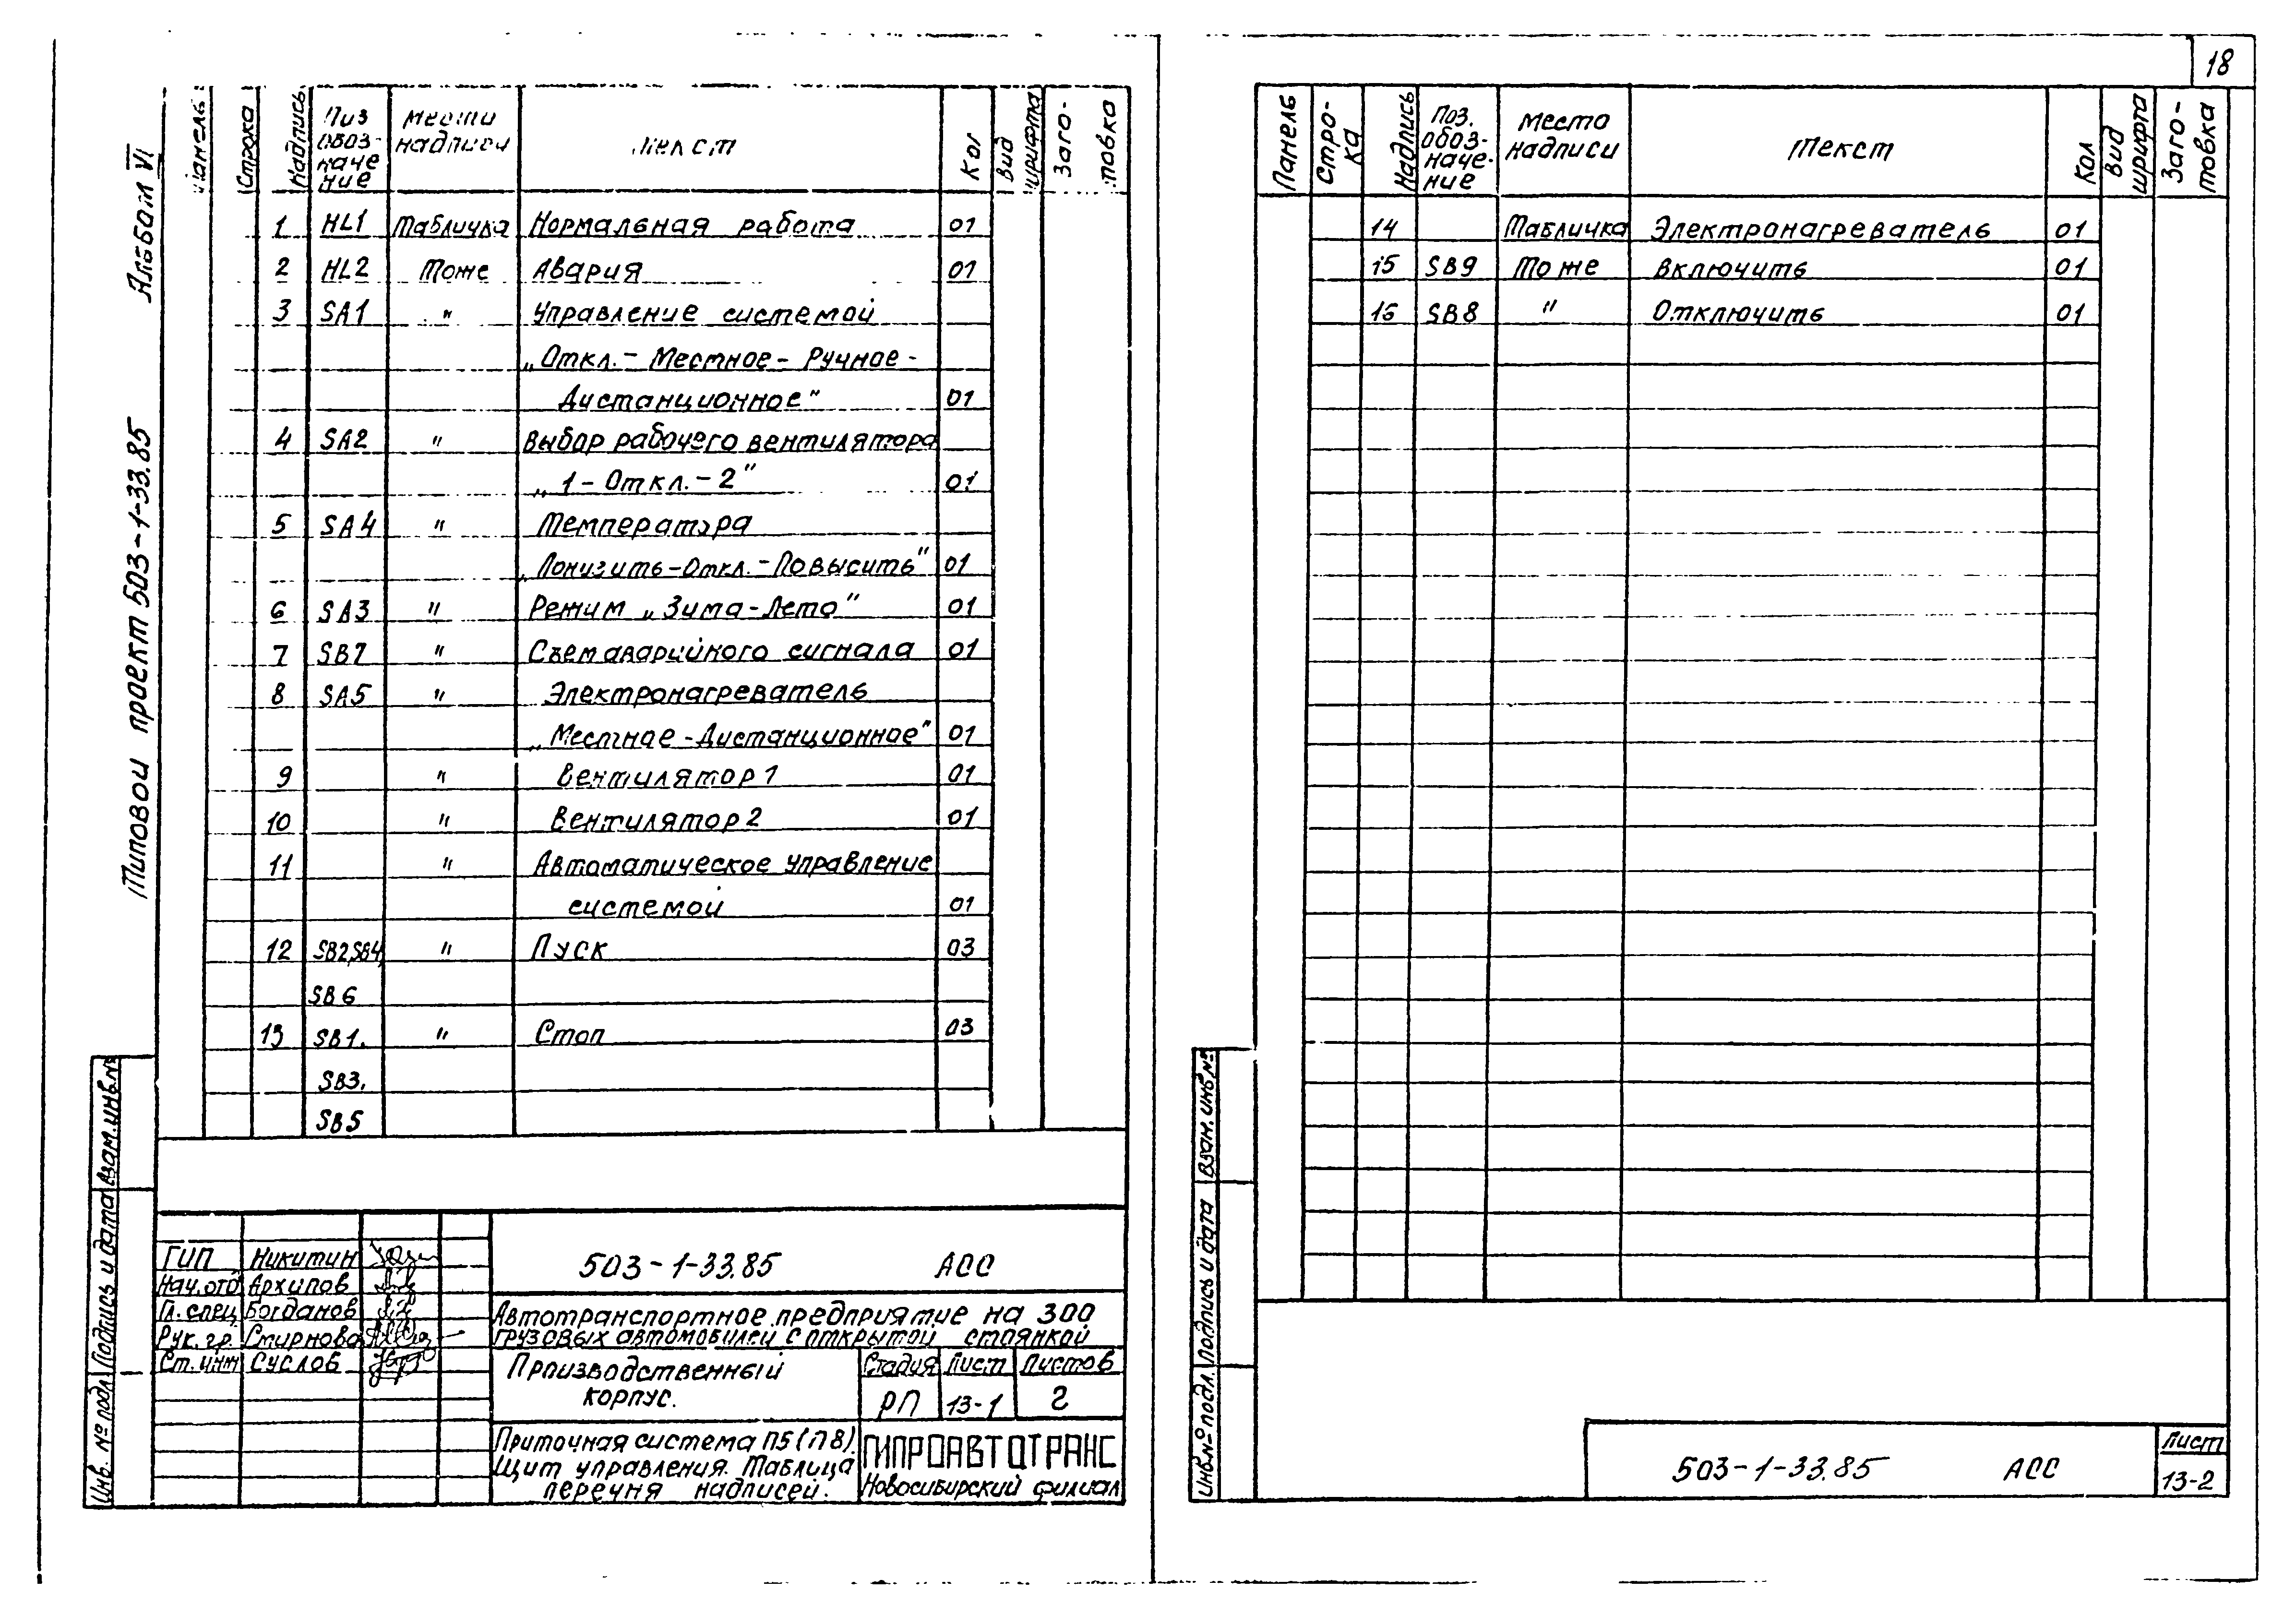 18
Альбом VI
Типовой проект 503-1-33.85
Панель Строка Надпись Поз обоз-наче ние Место надписи Текст Кол Вид шрифта Заго-товка
1 HL1 Табличка Нормальная работа 01
2 HL2 Тоже Авария 01
3 SA1 " Управление системой
„Откл.- Местное- Ручное-
Дистанционное" 01
4 SA2 " Выбор рабочего вентилятора
„1-Откл.-2" 01
5 SA4 " Температура
„Понизить-Откл.-Повысить" 01
6 SA3 " Режим „Зима-Лето" 01
7 SB7 " Съем аварийного сигнала 01
8 SA5 " Электронагреватель
„Местное-Дистанционное" 01
9 " Вентилятор 1 01
10 " Вентилятор 2 01
11 " Автоматическое управление
системой 01
12 SB2,SB4, " Пуск 03
SB6
13 SB1. " Стоп 03
SB3.
SB5
ГИП Никитин
Нач.отд Архипов
Гл.спец Богданов
Рук.гр. Смирнова
Ст.инж Суслов
503-1-33.85 АСС
Автотранспортное предприятие на 300
грузовых автомобилей с открытой стоянкой
Производственный
корпус.
Стадия Лист Листов
РП 13-1 2
Приточная система П5(П8).
Щит управления. Таблица
перечня надписей.
ГИПРОАВТОТРАНС
Новосибирский филиал
Инв. № подл Подпись и дата Взам.инв.№
Панель Стро-ка Надпись Поз. обоз-наче-ние Место надписи Текст Кол Вид шрифта Заго-товка
14 Табличка Электронагреватель 01
15 SB9 Тоже Включить 01
16 SB8 " Отключить 01
Инв.№ подл. Подпись и дата Взам.инв№
503-1-33.85 АСС
Лист
13-2